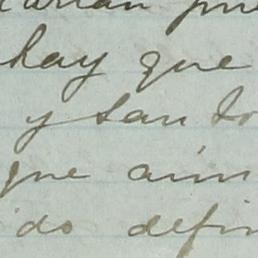 hay que
y san to
que aun
ido defin